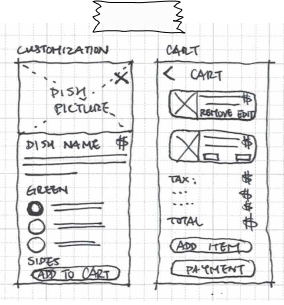 CUSTOMIZATION
DISH
PICTURE
DISH NAME $
GREEN
SIDES
ADD TO CART
CART
< CART
$
REMOVE EDIT
$
TAX: $
$
$
TOTAL $
ADD ITEM
PAYMENT